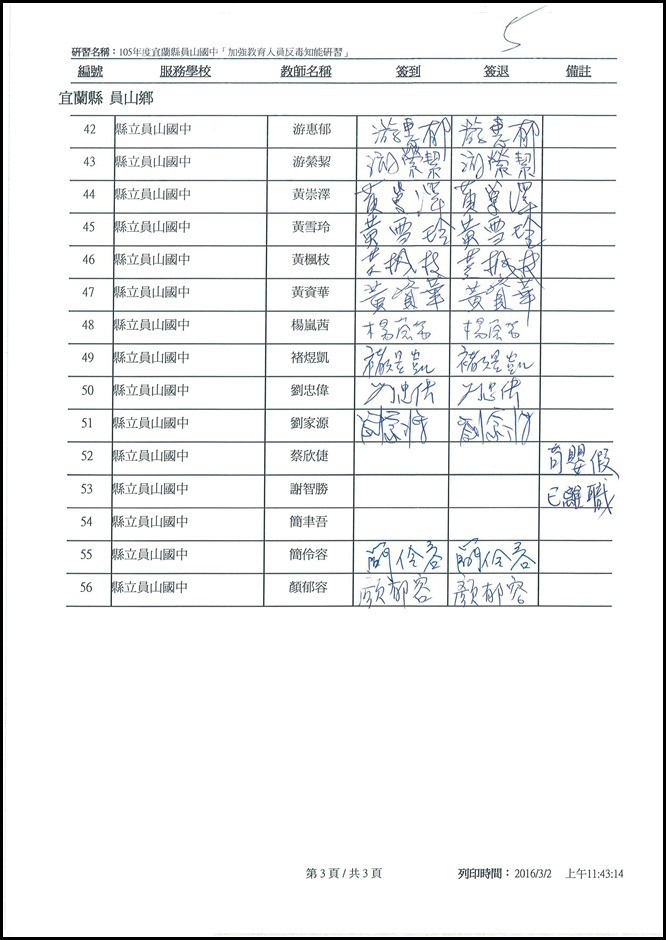 5
研習名稱：105年度宜蘭縣員山國中「加強教育人員反毒知能研習」
編號 服務學校 教師名稱 簽到 簽退 備註
宜蘭縣 員山鄉
42 縣立員山國中 游惠郁 游惠郁 游惠郁
43 縣立員山國中 游縈絜 游縈絜 游縈絜
44 縣立員山國中 黃崇澤 黃崇澤 黃崇澤
45 縣立員山國中 黃雪玲 黃雪玲 黃雪玲
46 縣立員山國中 黃楓枝 黃楓枝 黃楓枝
47 縣立員山國中 黃資華 黃資華 黃資華
48 縣立員山國中 楊嵐茜 楊嵐茜 楊嵐茜
49 縣立員山國中 褚煜凱 褚煜凱 褚煜凱
50 縣立員山國中 劉忠偉 刘忠偉 刘忠偉
51 縣立員山國中 劉家源 劉家源 劉家源
52 縣立員山國中 蔡欣倢 育嬰假
53 縣立員山國中 謝智勝 已離職
54 縣立員山國中 簡聿吾
55 縣立員山國中 簡伶容 簡伶容 簡伶容
56 縣立員山國中 顏郁容 顏郁容 顏郁容
第 3 頁 / 共 3 頁 列印時間： 2016/3/2 上午11:43:14